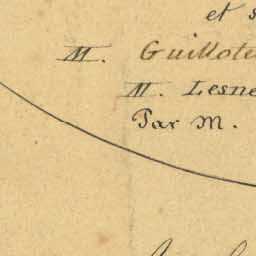 et s
M. Guillote
M. Lesne
Par M.